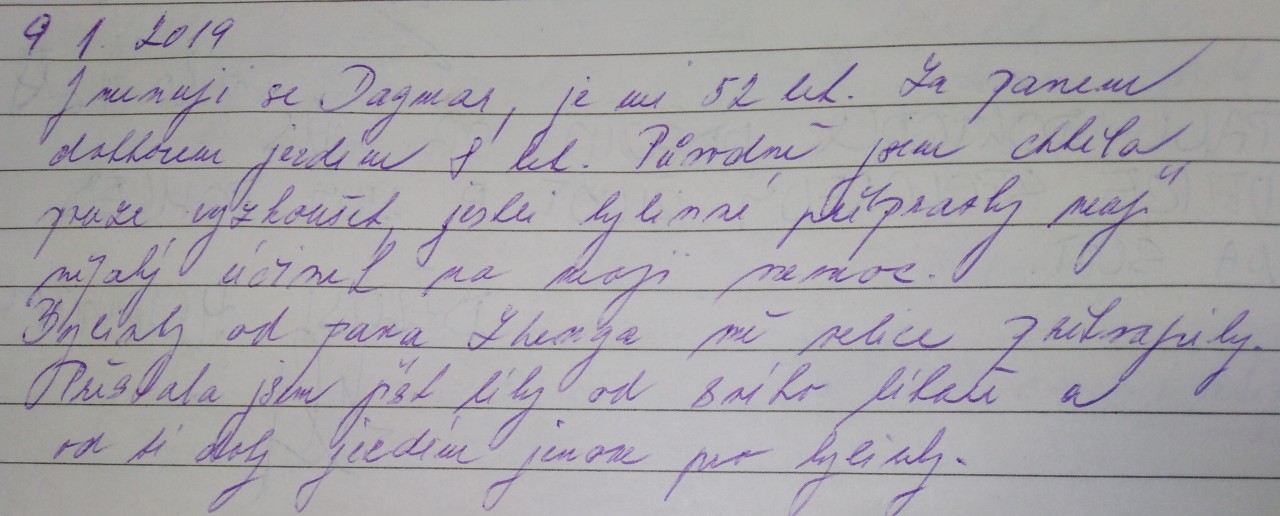 9 1. 2019
Jmenuji se Dagmar, je mi 52 let. Za panem
doktorem jezdím 8 let. Původně jsem chtěla
pouze vyzkoušet, jestli bylinné přípravky mají
nějaký účinek na moji nemoc.
Bylinky od pana Zhenga mě velice překvapily.
Přestala jsem brát léky od svého lékaře a
od té doby jezdím jenom pro bylinky.